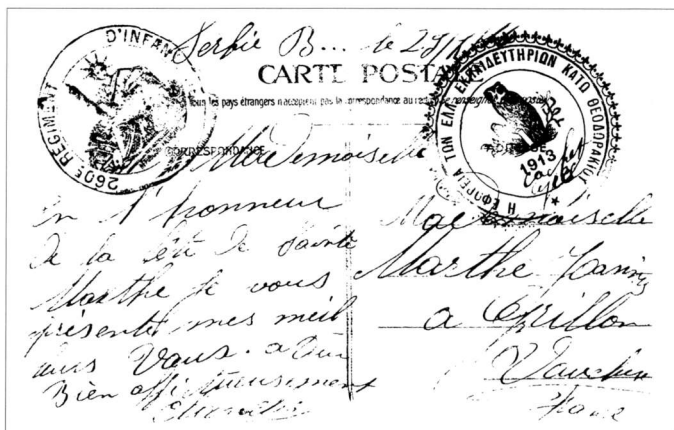 Serbie B... le 29
CARTE POSTALE
Tous les pays étrangers n'acceptent pas la correspondance au
CORRESPONDANCE
260E REGIMENT D'INFAN
Η ΕΦΟΡΕΙΑ ΤΩΝ ΕΛΛ ΕΚΠΑΙΔΕΥΤΗΡΙΩΝ ΚΑΤΩ ΘΕΟΔΩΡΑΚΙΟΥ
1913
Cachet
Mademoiselle
En l'honneur
de la fête de Sainte
Marthe je vous
présente mes meil
leurs Vœux. a
Bien affectueusement
Mademoiselle
Marthe
a Crillon
Vaucluse
France